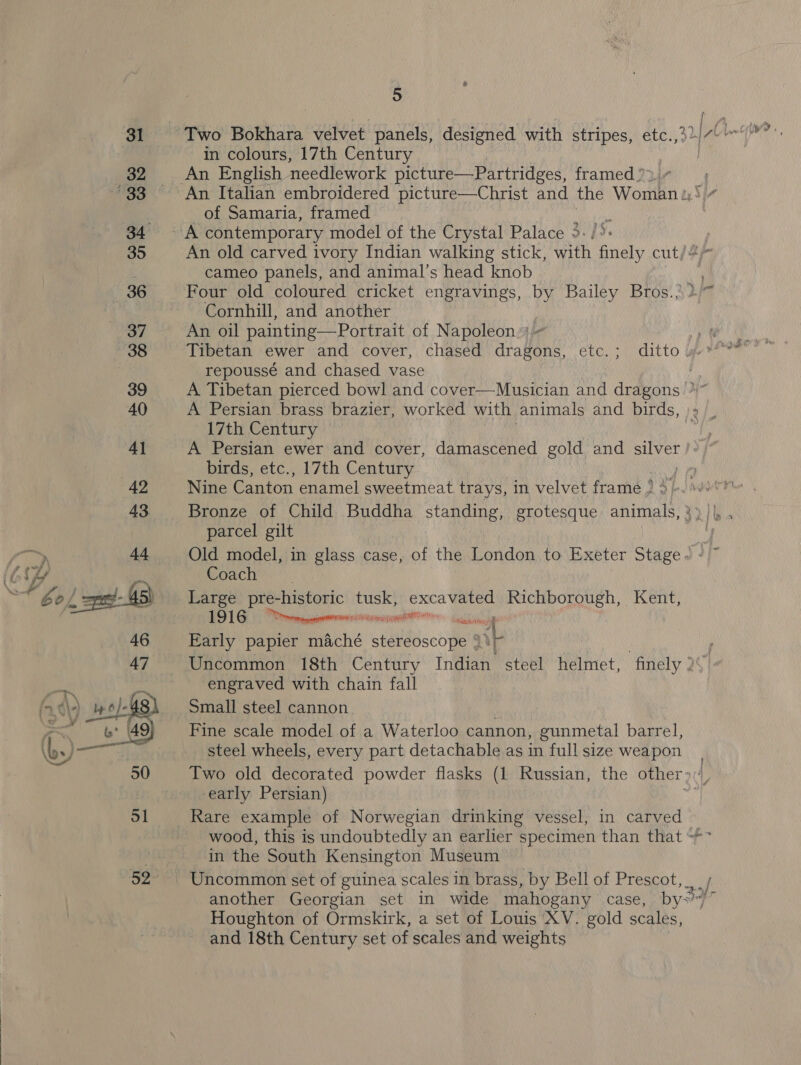 5
31 Two Bokhara velvet panels, designed with stripes, etc.,
in colours, 17th Century
32 An English needlework picture—Partridges, framed
33 An Italian embroidered picture—Christ and the Woman
of Samaria, framed
34 A contemporary model of the Crystal Palace
35 An old carved ivory Indian walking stick, with finely cut
cameo panels, and animal's head knob
36 Four old coloured cricket engravings, by Bailey Bros.,
Cornhill, and another
37 An oil painting—Portrait of Napoleon
38 Tibetan ewer and cover, chased dragons, etc.; ditto
repoussé and chased vase
39 A Tibetan pierced bowl and cover—Musician and dragons
40 A Persian brass brazier, worked with animals and birds,
17th Century
41 A Persian ewer and cover, damascened gold and silver
birds, etc., 17th Century
42 Nine Canton enamel sweetmeat trays, in velvet frame
43 Bronze of Child Buddha standing, grotesque animals,
parcel gilt
44 Old model, in glass case, of the London to Exeter Stage
Coach
60/- 45 Large pre-historic tusk, excavated Richborough, Kent,
1916
46 Early papier mâché stereoscope
47 Uncommon 18th Century Indian steel helmet, finely
engraved with chain fall
48 Small steel cannon
49 Fine scale model of a Waterloo cannon, gunmetal barrel,
steel wheels, every part detachable as in full size weapon
50 Two old decorated powder flasks (1 Russian, the other
early Persian)
51 Rare example of Norwegian drinking vessel, in carved
wood, this is undoubtedly an earlier specimen than that
in the South Kensington Museum
52 Uncommon set of guinea scales in brass, by Bell of Prescot,
another Georgian set in wide mahogany case, by
Houghton of Ormskirk, a set of Louis XV. gold scales,
and 18th Century set of scales and weights